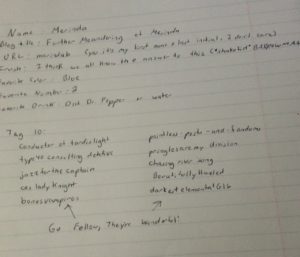 Name : Merinda
Blog title : Further Meandering of Merinda
URL : merindab (yes it's my first name & last initial, I don't care)
Crush : I think we all know the answer to this
Favorite Color : Blue
Favorite Number : 2
Favorite Drink : Diet Dr. Pepper or water
Tag 10:
conductor of tardislight
type 40 consulting detective
jazz for the captain
ces lady knight
bones vampires
pointless posts-and-fandoms
pringles are my division
chasing river song
Beautifully Haeled
darkest elemental
Go Follow, They're wonderful!